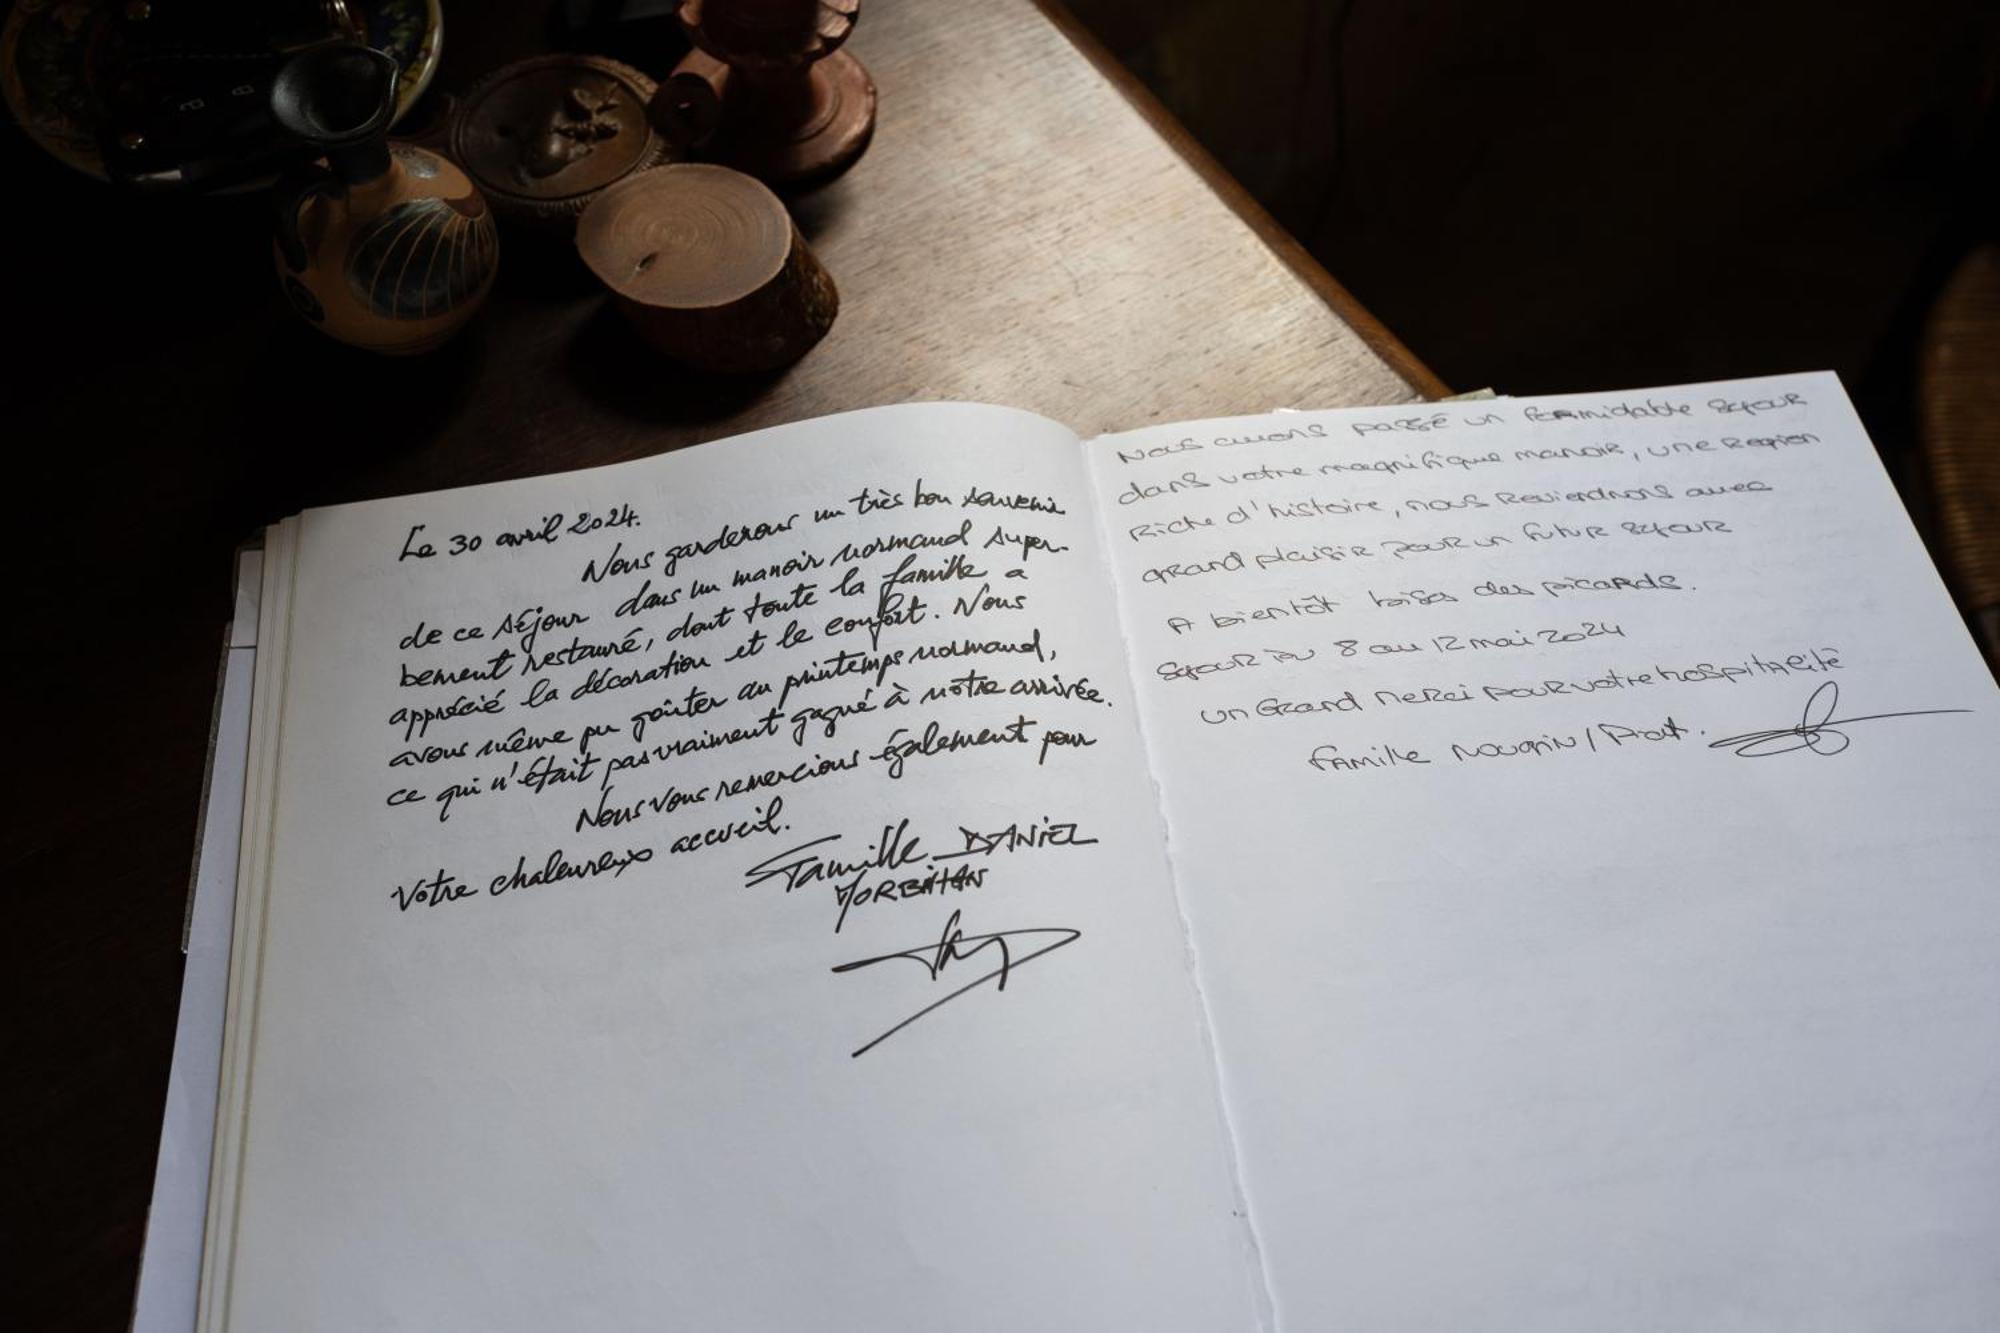 Le 30 avril 2024.
Nous garderons un très bon souvenir
de ce séjour dans un manoir normand super-
bement restauré, dont toute la famille a
apprécié la décoration et le confort. Nous
avons même pu goûter au printemps normand,
ce qui n'était pas vraiment gagné à notre arrivée.
Nous vous remercions également pour
votre chaleureux accueil.
Famille DANIEL
MORBIHAN
Nous avons passé un formidable séjour
dans votre magnifique manoir, une Region
Riche d'histoire, nous Reviendrons avec
grand plaisir pour un futur séjour
A bientôt bises des picards.
séjour du 8 au 12 mai 2024
un Grand Merci pour votre hospitalité
famille